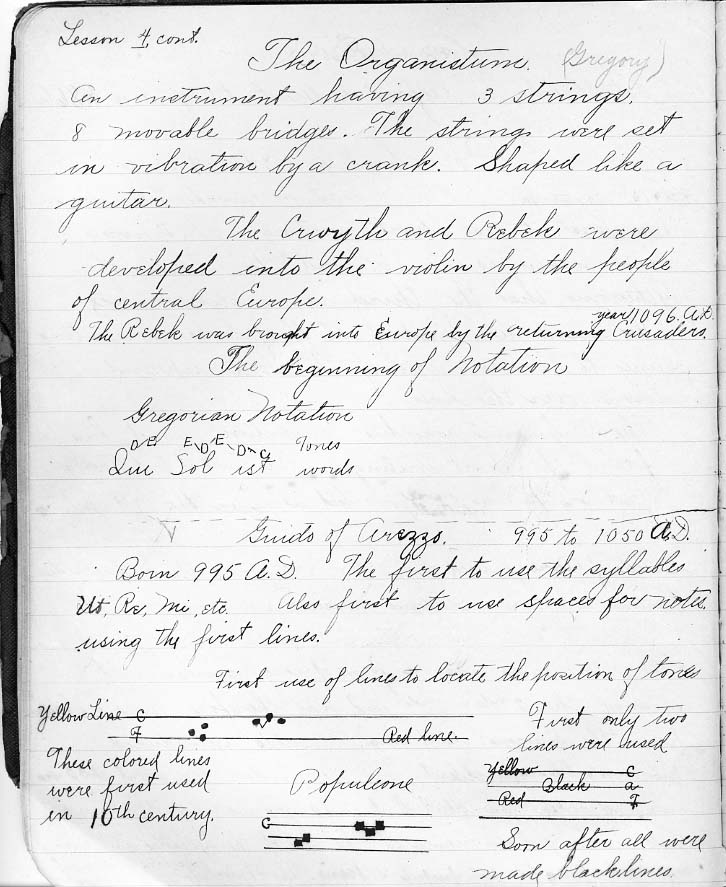 Lesson 4, cont.
The Organistum. (Gregory)
An instrument having 3 strings.
8 movable bridges. The strings were set
in vibration by a crank. Shaped like a
guitar.
The Crwyth and Rebek were
developed into the violin by the people
of central Europe.
year 1096. A.D.
The Rebek was brought into Europe by the returning Crusaders.
The beginning of Notation
Gregorian Notation
D E E D E D C Tones
Qui Sol ist words
Guido of Arezzo. 995 to 1050 A.D.
Born 995 A.D. The first to use the syllables
Ut, Re, Mi, etc. Also first to use spaces for notes.
using the first lines.
First use of lines to locate the position of tones
Yellow Line C
F Red line.
These colored lines
were first used
in 10th century.
Populeone
C
First only two
lines were used
Yellow C
Black a
Red F
Soon after all were
made black lines